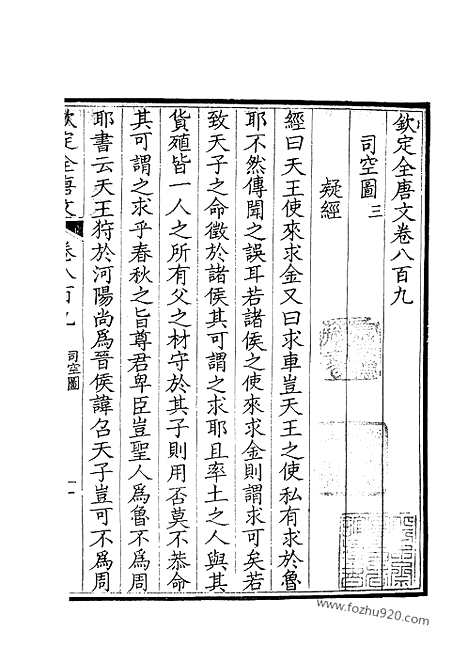 欽定全唐文卷八百九
司空圖三
疑經
經曰天王使來求金又曰求車豈天王之使私有求於魯
耶不然傳聞之誤耳若諸侯之使來求金則謂求可矣若
致天子之命徵於諸侯其可謂之求耶且率土之人與其
貨殖皆一人之所有父之材守於其子則用否莫不恭命
其可謂之求乎春秋之旨尊君卑臣豈聖人爲魯不爲周
耶書云天王狩於河陽尚爲晉侯諱召天子豈可不爲周
欽定全唐文
卷八百九
司空圖
一
www.fozhu920.com